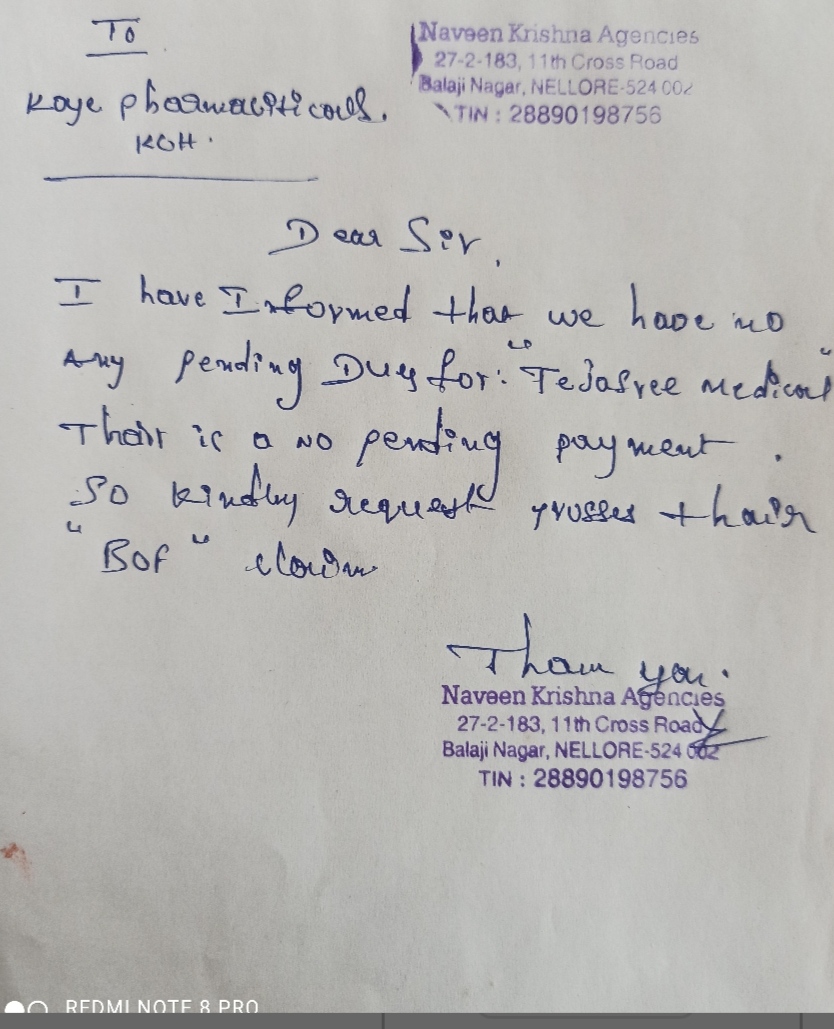 To
Naveen Krishna Agencies
27-2-183, 11th Cross Road
Balaji Nagar, NELLORE-524 002
TIN : 28890198756
Kaye pharmaciticals.
KGH.
Dear Sir,
I have Informed that we have no
Any pending Dues for: "Tejasree Medical"
Their is a no pending payment.
So kindly request prosses thair
"BOF" claim
Than you.
Naveen Krishna Agencies
27-2-183, 11th Cross Road
Balaji Nagar, NELLORE-524 002
TIN : 28890198756
REDMI NOTE 8 PRO